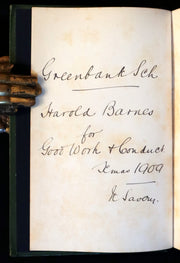 Greenbank Sch
Harold Barnes
for
Good Work & Conduct
Xmas 1909